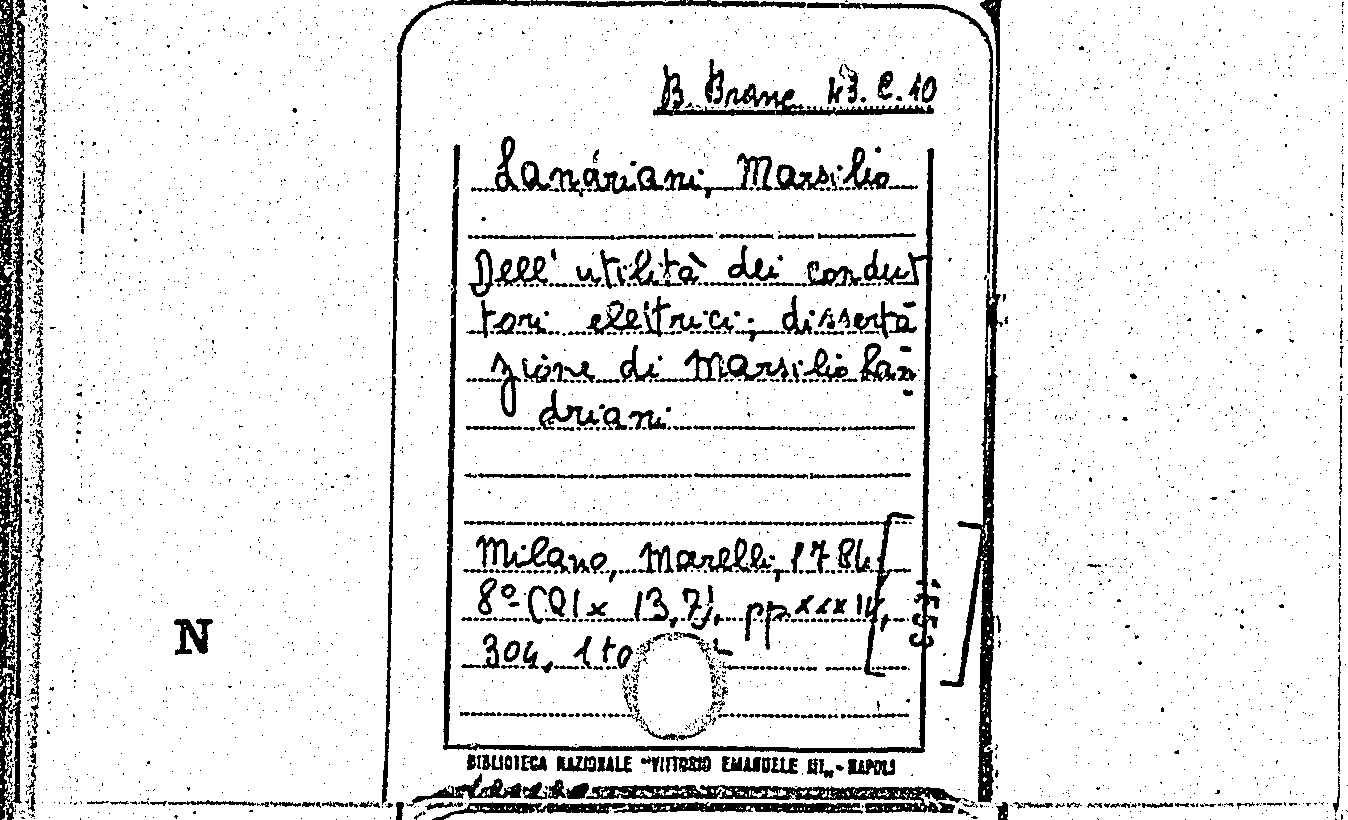 B. Branc. 43. C. 10
Lanariani, Marsilio
Dell' utilità dei condut
tori elettrici; disserta
zione di Marsilio Lan
driani
Milano, Marelli, 1784
8º (21 x 13,7), pp. XXXIV,
304, 1 to
N
BIBLIOTECA NAZIONALE "VITTORIO EMANUELE III„ - NAPOLI